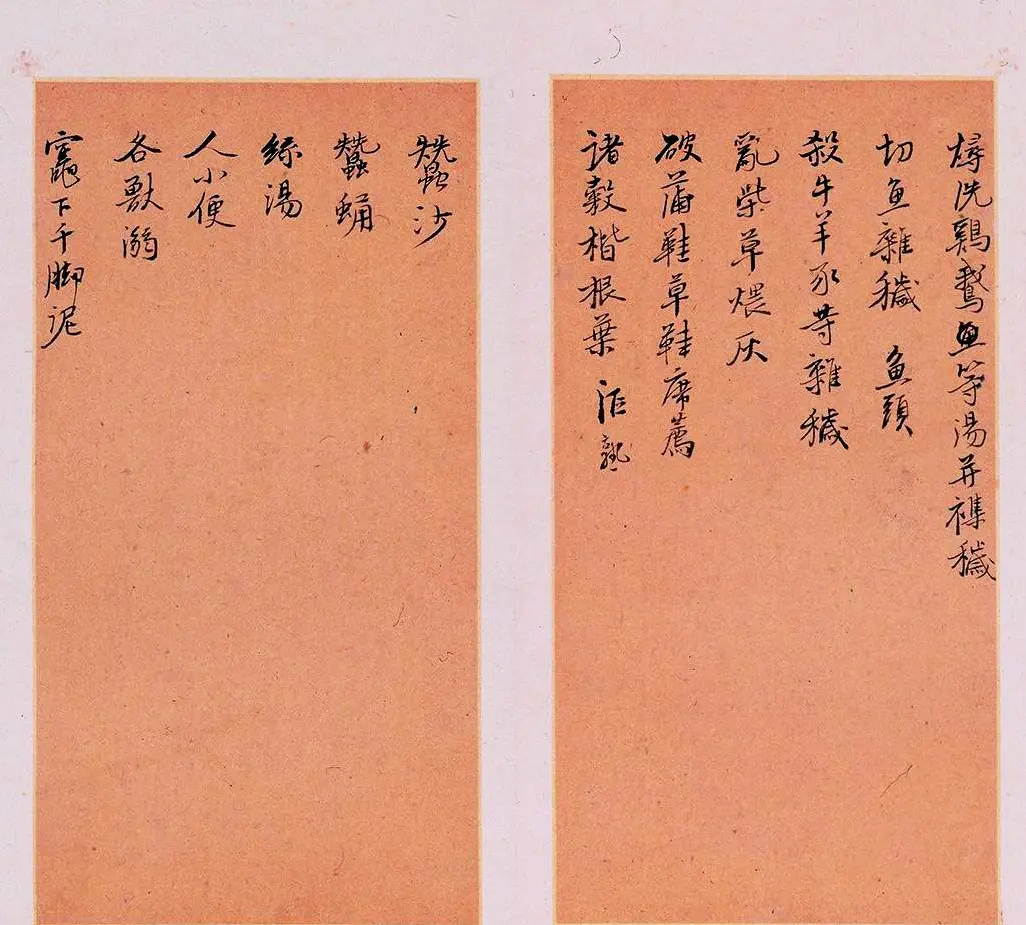 燖洗鶏鵞魚等湯并襍穢
切魚雜穢 魚頭
殺牛羊豕等雜穢
亂柴草煨灰
破蒲鞋草鞋席薦
諸穀楷根葉 漚熟
蠶沙
蠶蛹
絲湯
人小便
各獸溺
竈下千脚泥